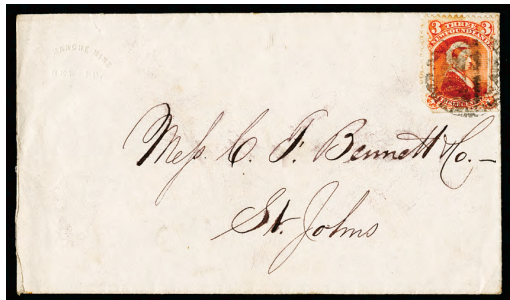 3 THREE 3
NEWFOUNDLAND
Mess. C. F. Bennett & Co. –
St. Johns